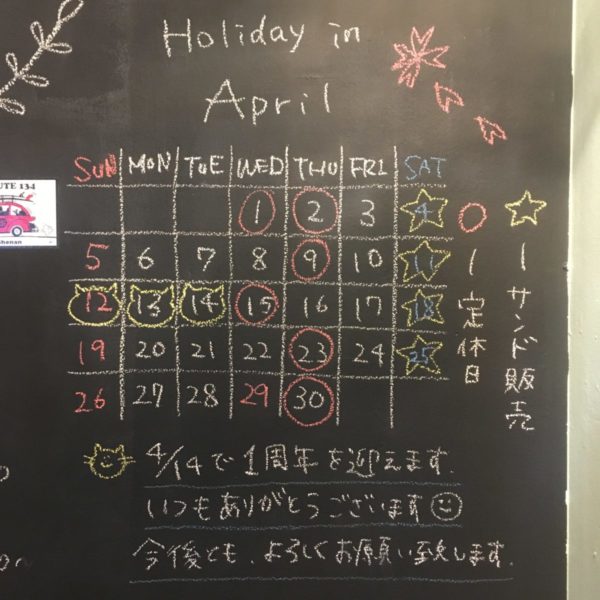 Holiday in
April
SUN MON TUE WED THU FRI SAT
1 2 3 4
5 6 7 8 9 10 11
12 13 14 15 16 17 18
19 20 21 22 23 24 25
26 27 28 29 30
○ー定休日
☆ーサンド販売
UTE 134
4/14で1周年を迎えます.
いつもありがとうございます
今後とも、よろしくお願い致します.